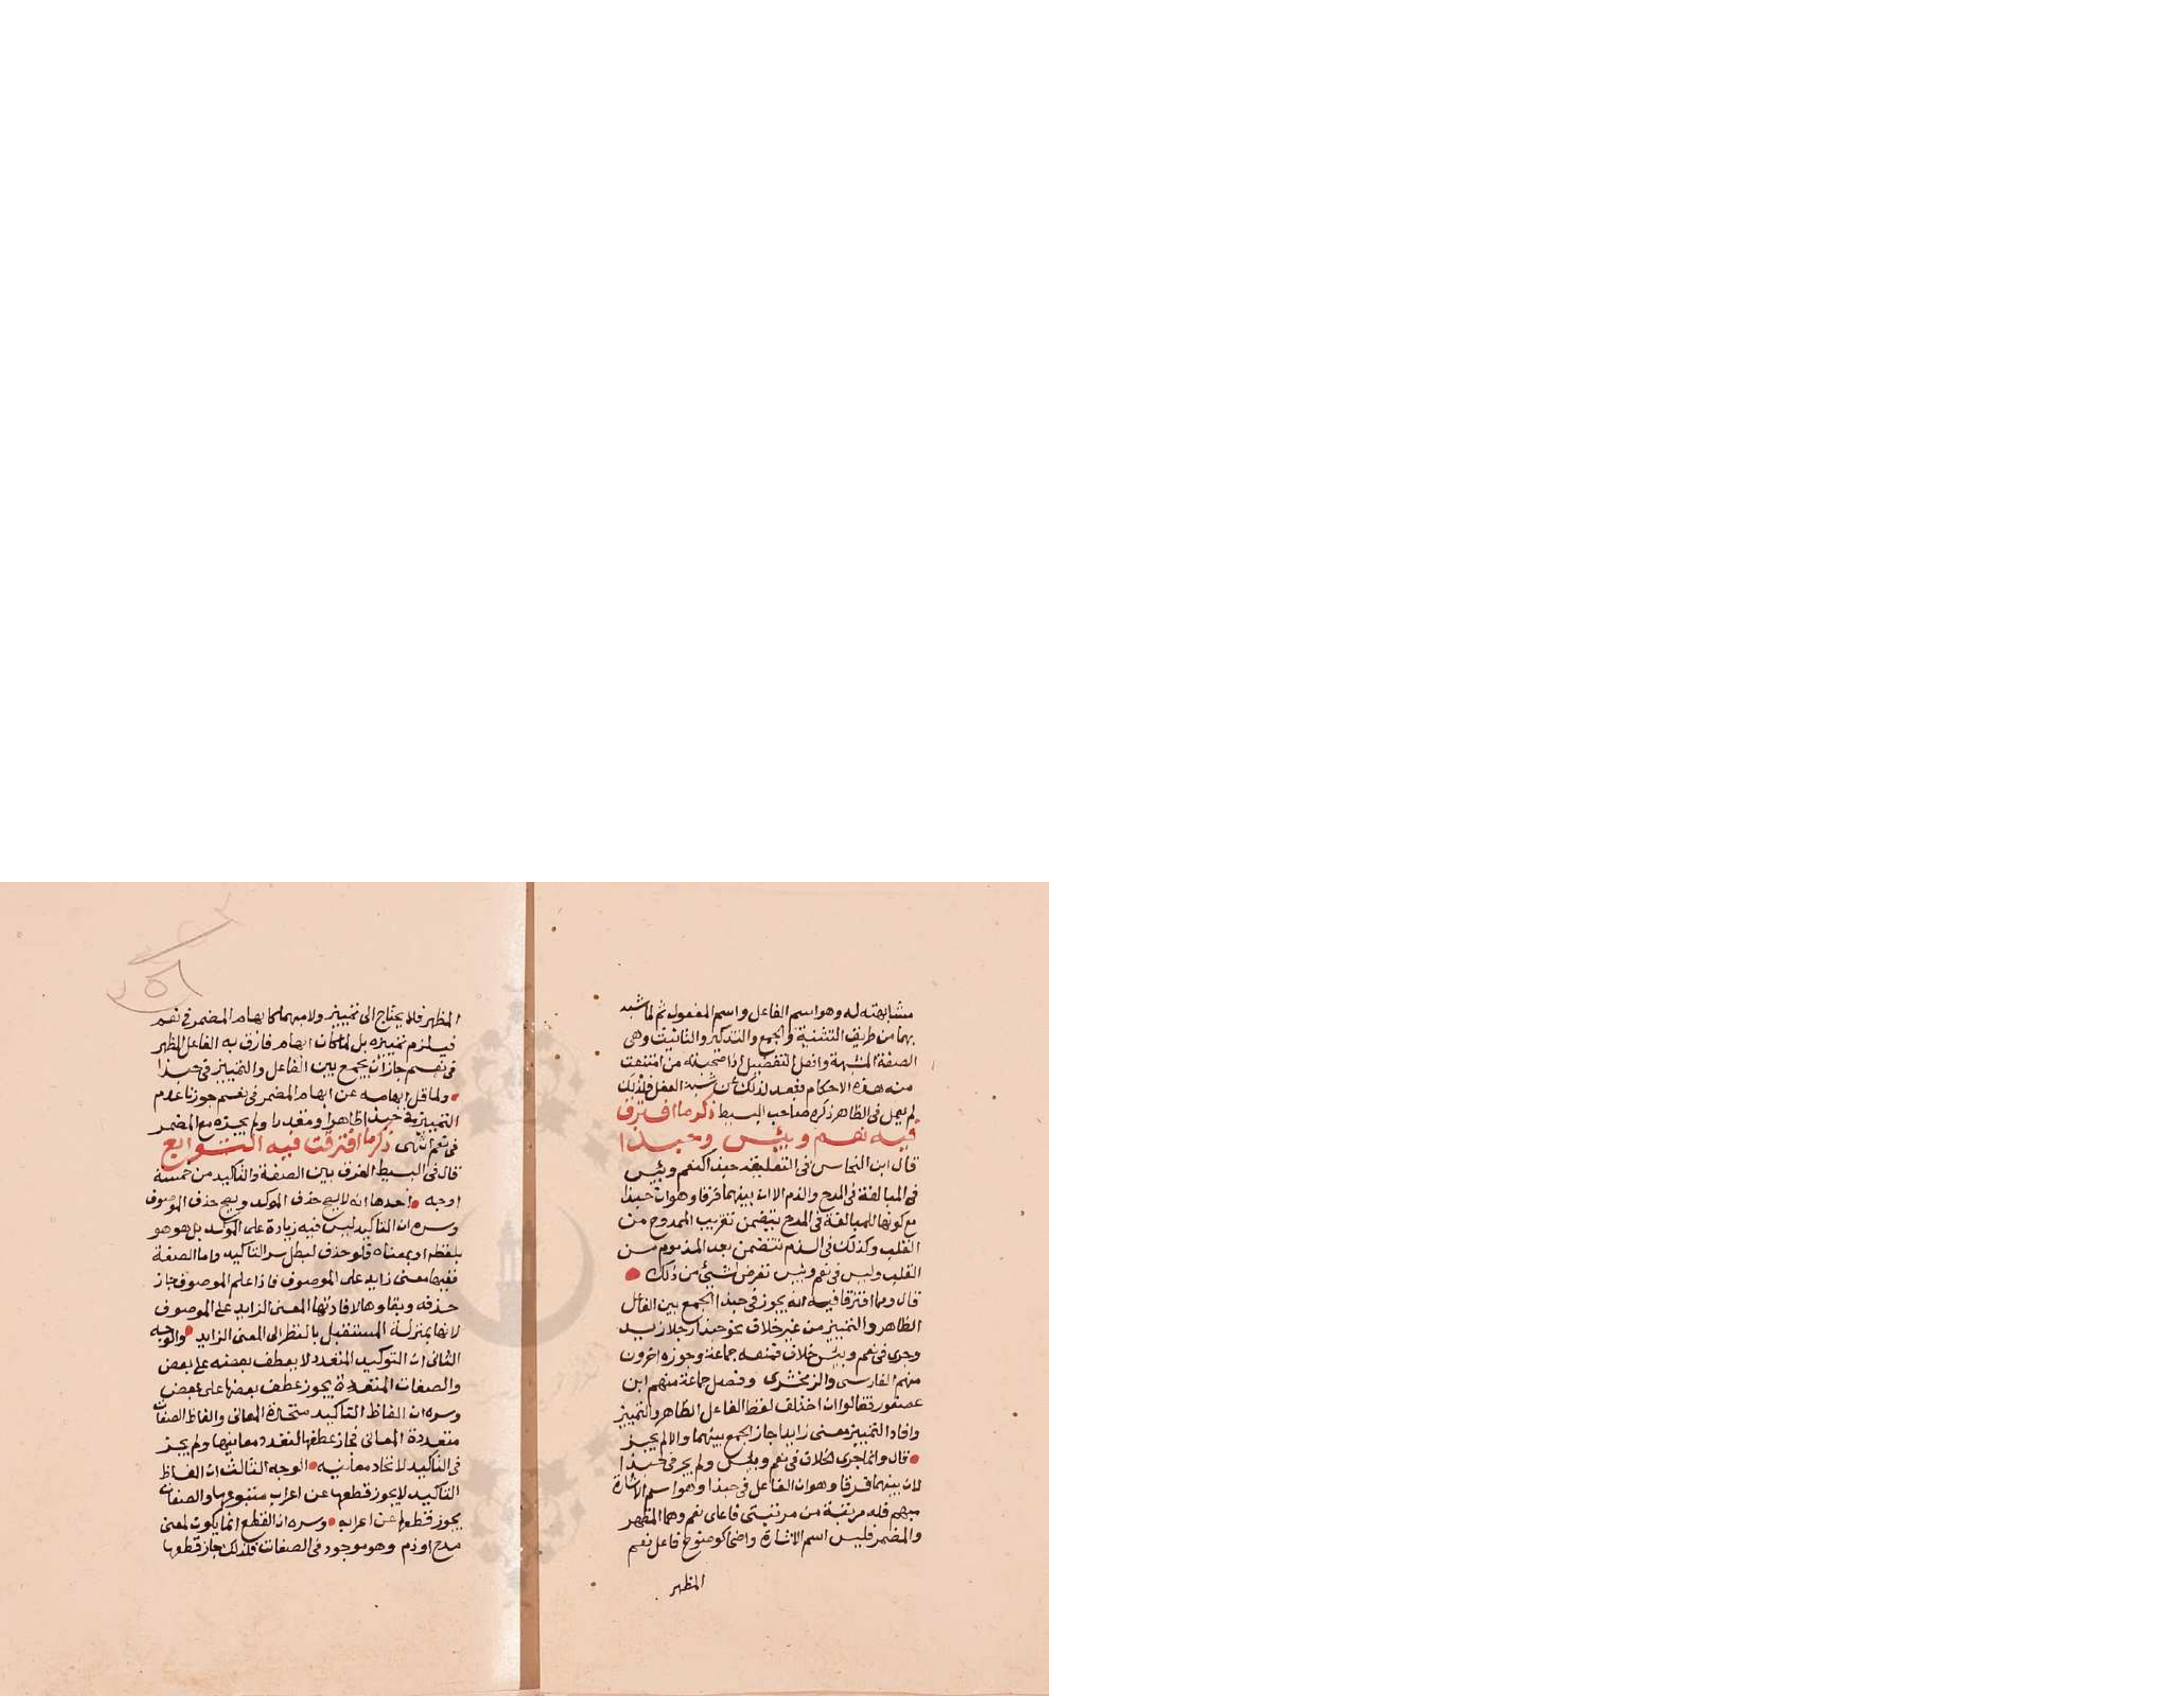 مشابهته له وهو اسم الفاعل واسم المفعول ثم لما شبه
بهما من طريق التثنية والجمع والتذكير والتانيث وهى
الصفة المشبهة وافعل التفضيل اذا صحبته من امتنعت
منه هذه الاحكام فبعد لذلك عن شبه الفعل فلذلك
لم يعمل فى الظاهر ذكره صاحب البسيط ذكر ما افترق
فيه نعم وبئس وحبذا
قال ابن النحاس فى التعليقة حبذا كنعم وبئس
فى المبالغة فى المدح والذم الا ان بينهما فرقا وهو ان حبذا
مع كونها للمبالغة فى المدح يتضمن تقريب الممدوح من
القلب وكذلك فى الذم تتضمن بعد المذموم من
القلب وليس فى نعم وبئس تعرض لشئ من ذلك
قال ومما افترقا فيه انه يجوز فى حبذا الجمع بين الفاعل
الظاهر والتمييز من غير خلاف نحو حبذا رجلا زيد
وجرى فى نعم وبئس خلاف فمنعه جماعة وجوزه اخرون
منهم الفارسى والزمخشرى وفصل جماعة منهم ابن
عصفور فقالوا ان اختلف لفظ الفاعل الظاهر والتمييز
وافاد التمييز معنى زايدا جاز الجمع بينهما والا لم يجز
قال وانما جرى الخلاف فى نعم وبئس ولم يجر فى حبذا
لان بينهما فرقا وهو ان الفاعل فى حبذا وهو اسم الاشارة
مبهم فله مرتبة من مرتبتى فاعلى نعم وهما المظهر
والمضمر فليس اسم الاشارة واضحا كوضوح فاعل نعم
المظهر
المظهر فلا يحتاج الى تمييز ولا مبهما كابهام المضمر فى نعم
فيلزم تمييزه بل لما كان ابهام فارق به الفاعل المظهر
فى نعم جاز ان يجمع بين الفاعل والتمييز فى حبذا
ولما قل ابهامه عن ابهام المضمر فى نعم جوزنا عدم
التمييز فى حبذا ظاهرا ومقدرا ولم يجزه مع المضمر
فى نعم انتهى ذكر ما افترقت فيه التوابع
قال فى البسيط الفرق بين الصفة والتاكيد من خمسة
اوجه احدها انه لا يصح حذف الموكد ويصح حذف الموصوف
وسره ان التاكيد ليس فيه زيادة على الموكد بل هو هو
بلفظه او بمعناه فلو حذف لبطل سر التاكيد واما الصفة
ففيها معنى زايد على الموصوف فاذا علم الموصوف جاز
حذفه وبقاوها لافادتها المعنى الزايد على الموصوف
لانها بمنزلة المستقبل بالنظر الى المعنى الزايد والوجه
الثانى ان التوكيد المتعدد لا يعطف بعضه على بعض
والصفات المتعددة يجوز عطف بعضها على بعض
وسره ان الفاظ التاكيد متحدة المعانى والفاظ الصفات
متعددة المعانى فجاز عطفها لتعدد معانيها ولم يجز
فى التاكيد لاتحاد معانيه الوجه الثالث ان الفاظ
التاكيد لا يجوز قطعها عن اعراب متبوعها والصفات
يجوز قطعها عن اعرابه وسره ان القطع انما يكون لمعنى
مدح او ذم وهو موجود فى الصفات فلذلك جاز قطعها